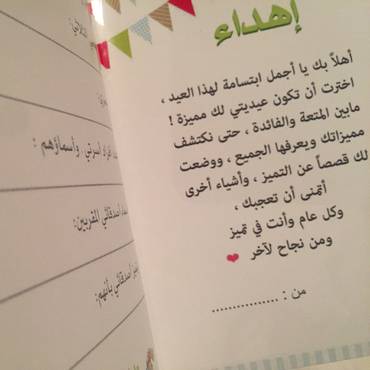 إهداء
أهلاً بك يا أجمل ابتسامة لهذا العيد ،
اخترت أن تكون عيديتي لك مميزة !
مابين المتعة والفائدة ، حتى نكتشف
مميزاتك ويعرفها الجميع ، ووضعت
لك قصصاً عن التميز ، وأشياء أخرى
أتمنى أن تعجبك ،
وكل عام وأنت في تميز
ومن نجاح لآخر
من : ................
أفراد أسرتي وأسماؤهم :
أصدقائي المقربين:
أصدقائي بأنهم: